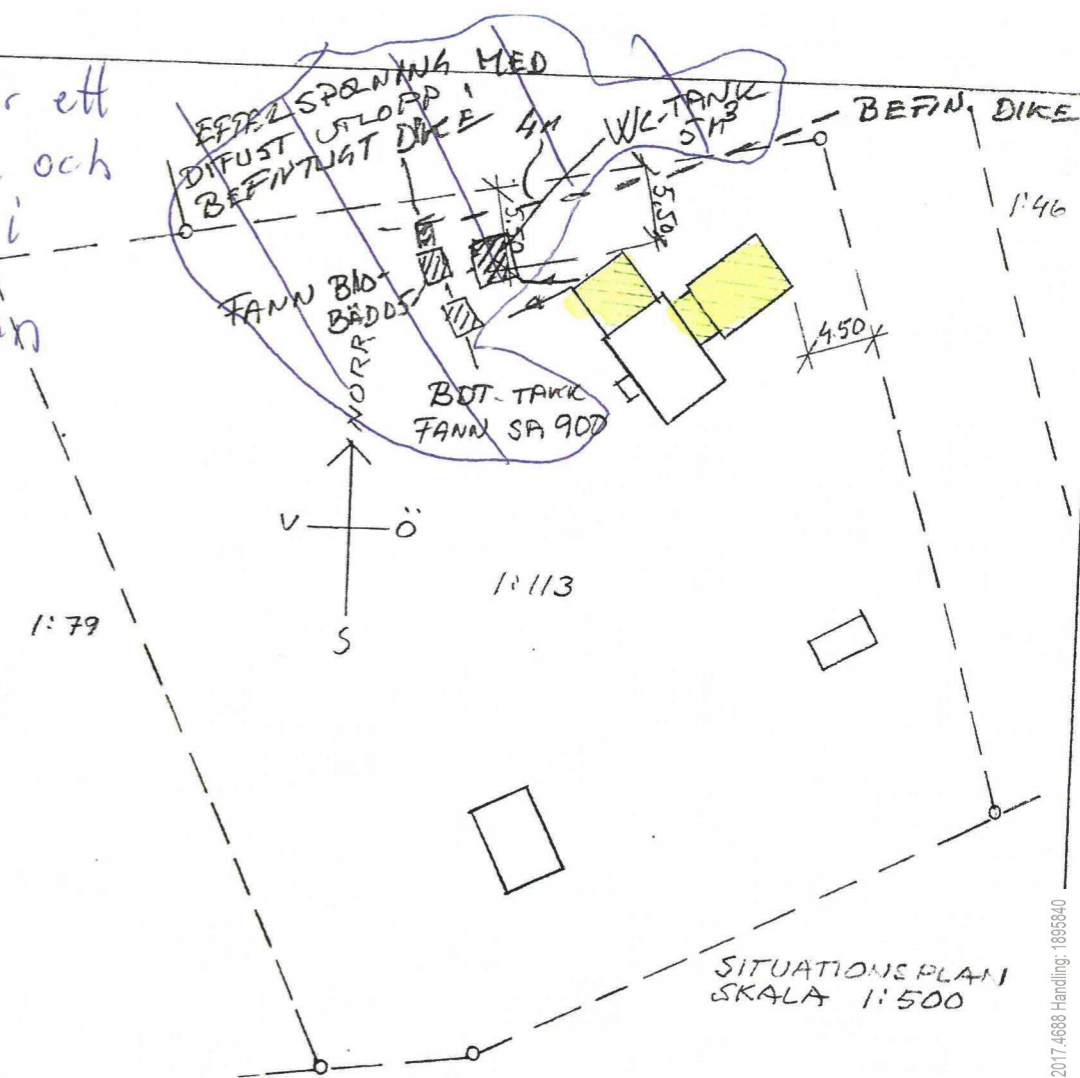 r ett
och
i
n
EFTERSPOLNING MED
DIFUST UTLOPP I
BEFINTLIGT DIKE
4M
WC-TANK
5M³
BEFIN. DIKE
1:46
5.50
5.50
FANN BIO-
BÄDD5
NORR
4.50
BDT-TANK
FANN SA 900
V
Ö
S
1:113
1:79
SITUATIONSPLAN
SKALA 1:500
2017.4688 Handling: 1895840